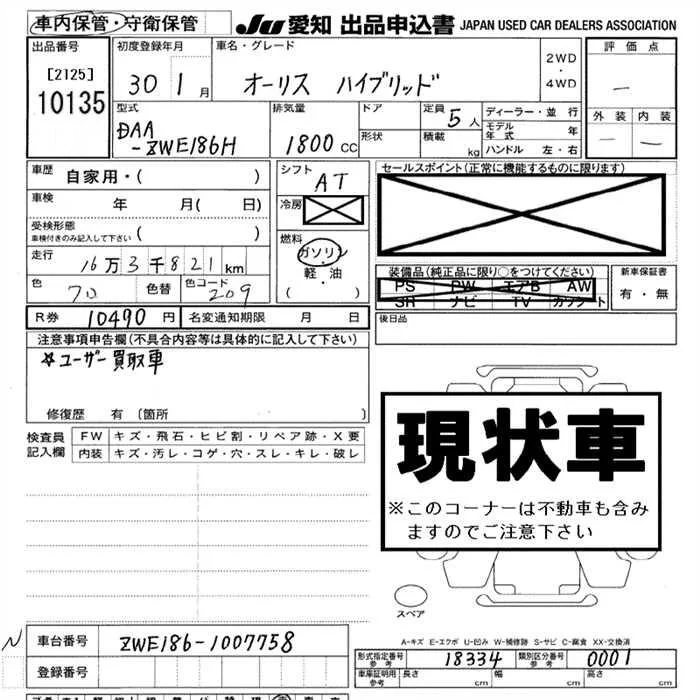 車内保管・守衛保管
JU 愛知 出品申込書 JAPAN USED CAR DEALERS ASSOCIATION
出品番号
[2125]
10135
初度登録年月
30 1月
車名・グレード
オーリス ハイブリッド
2WD
・
4WD
評価点
ー
外装 内装
ー ー
型式
DAA
-ZWE186H
排気量
1800 CC
ドア
形状
定員 5人
積載 kg
ディーラー・並行
モデル年式 年
ハンドル 左・右
車歴 自家用・( )
車検 年 月( 日)
受検形態
車検付きのみ記入して下さい ( )
走行 16万3千821km
色 70 色替 色コード 209
シフト AT
冷房
燃料
ガソリン
・
軽・油
( )
セールスポイント(正常に機能するものに限ります)
装備品(純正品に限り○をつけてください)
PS PW エアB AW
SR ナビ TV カワシート
新車保証書
有・無
R券 10490円 名変通知期限 月 日
後日品
注意事項申告欄(不具合内容等は具体的に記入して下さい)
☆ユーザー買取車
修復歴 有 〔箇所 〕
検査員記入欄
FW キズ・飛石・ヒビ割・リペア跡・X要
内装 キズ・汚レ・コゲ・穴・スレ・キレ・破レ
現状車
※このコーナーは不動車も含み
ますのでご注意下さい
スペア
A-キズ E-エクボ U-凹み W-補修跡 S-サビ C-腐食 XX-交換済
N
車台番号 ZWE186-1007758
登録番号
形式指定番号 参考 18334 類別区分番号 参考 0001
車庫証明用 参考 長さ cm 幅 cm 高さ cm